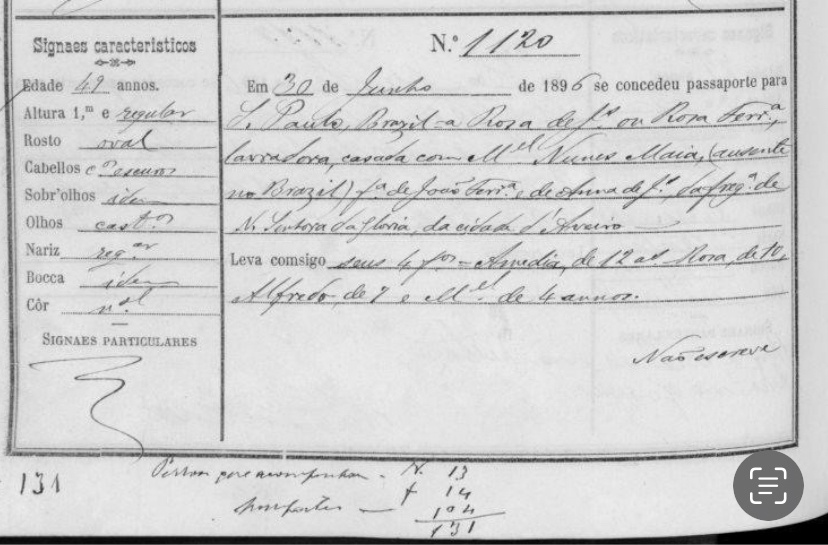 Signaes caracteristicos
Edade 49 annos.
Altura 1,m e regular
Rosto oval
Cabellos c.os escuros
Sobr'olhos idem
Olhos cast.os
Nariz reg.ar
Bocca idem
Côr n.al
SIGNAES PARTICULARES
N.º 1120
Em 30 de Junho de 1896 se concedeu passaporte para
S. Paulo, Brazil - a Rosa de J.s ou Rosa Ferr.a,
lavradora, casada com M.el Nunes Maia, (ausente
no Brazil) f.a de João Ferr.a e de Anna de J.s, da freg.a de
N. Senhora da Gloria, da cidade d'Aveiro
Leva comsigo seus 4 f.os - Amedia, de 12 a.s Rosa, de 10,
Alfredo de 7 e M.el de 4 annos.
Não escreve
131
que acompanham - N. 13
+ 14
104
131